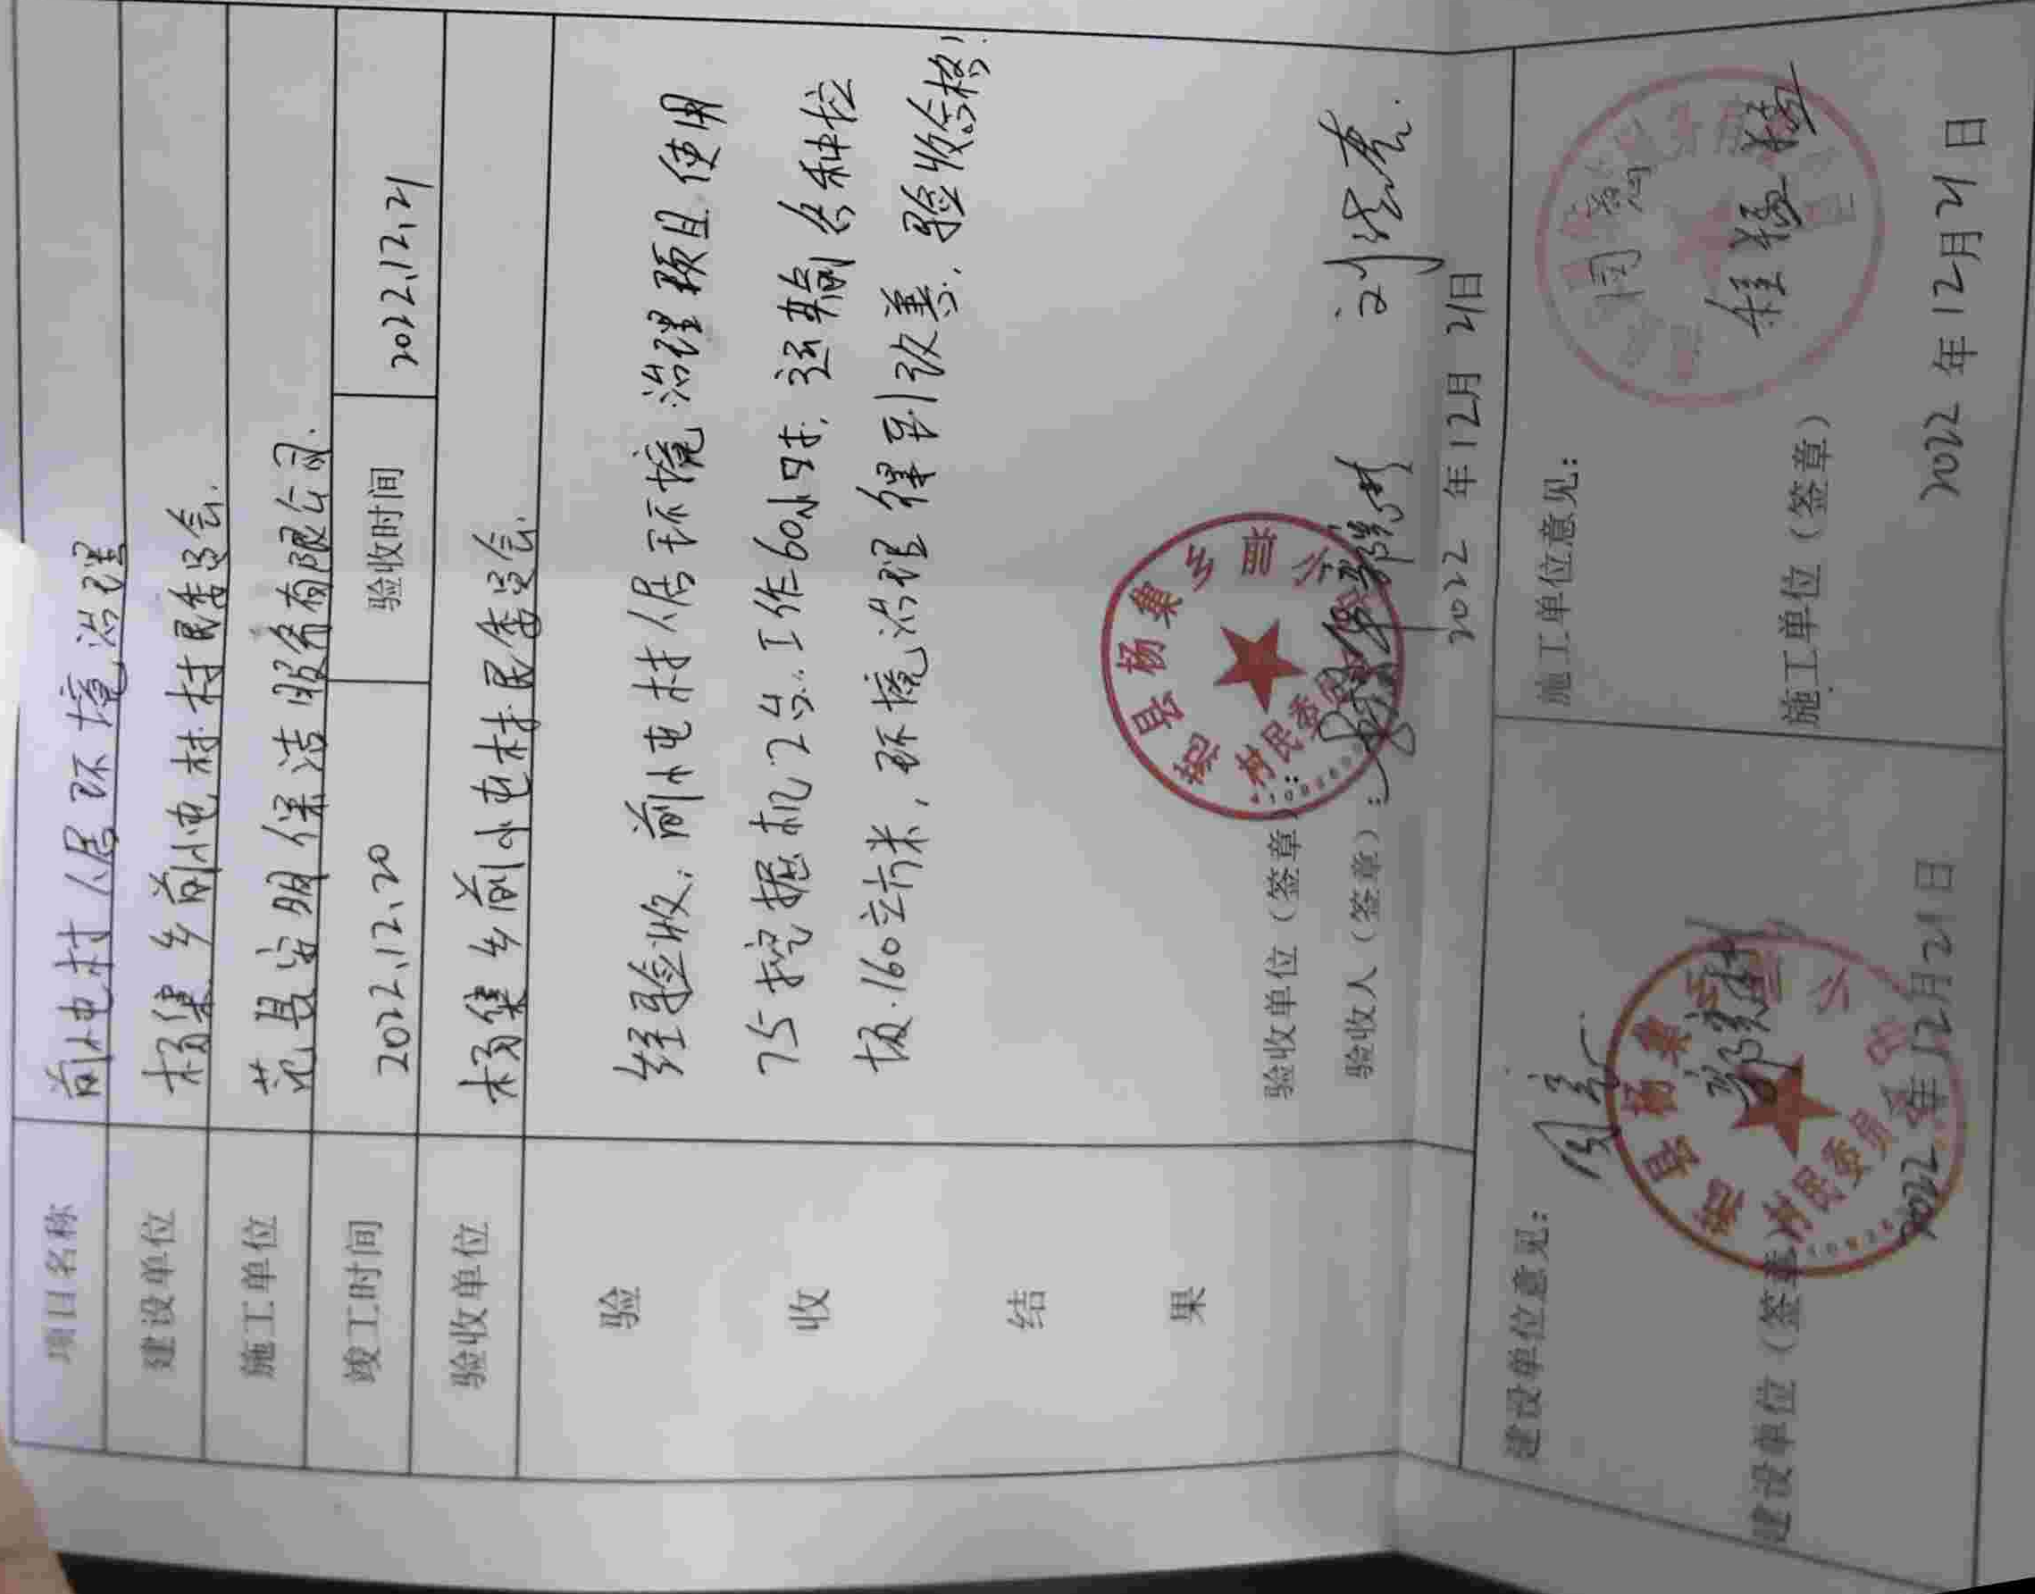 项目名称 前小屯村人居环境治理
建设单位 杨集乡前小屯村村民委员会.
施工单位 范县安朋保洁服务有限公司.
竣工时间 2022.12.20 验收时间 2022.12.21
验收单位 杨集乡前小屯村村民委员会.
验收结果
经验收:前小屯村人居环境治理项目使用
75挖掘机2台.工作60小时.运输各种垃
圾.160立方米,环境治理得到改善.验收合格!
验收单位(签章):
范县杨集乡前小屯
村民委员会
验收人(签章):
2022年12月21日
建设单位意见:
同意
建设单位(签章)
范县杨集乡前小屯
村民委员会
2022年12月21日
施工单位意见:
同意
施工单位(签章)
2022年12月21日